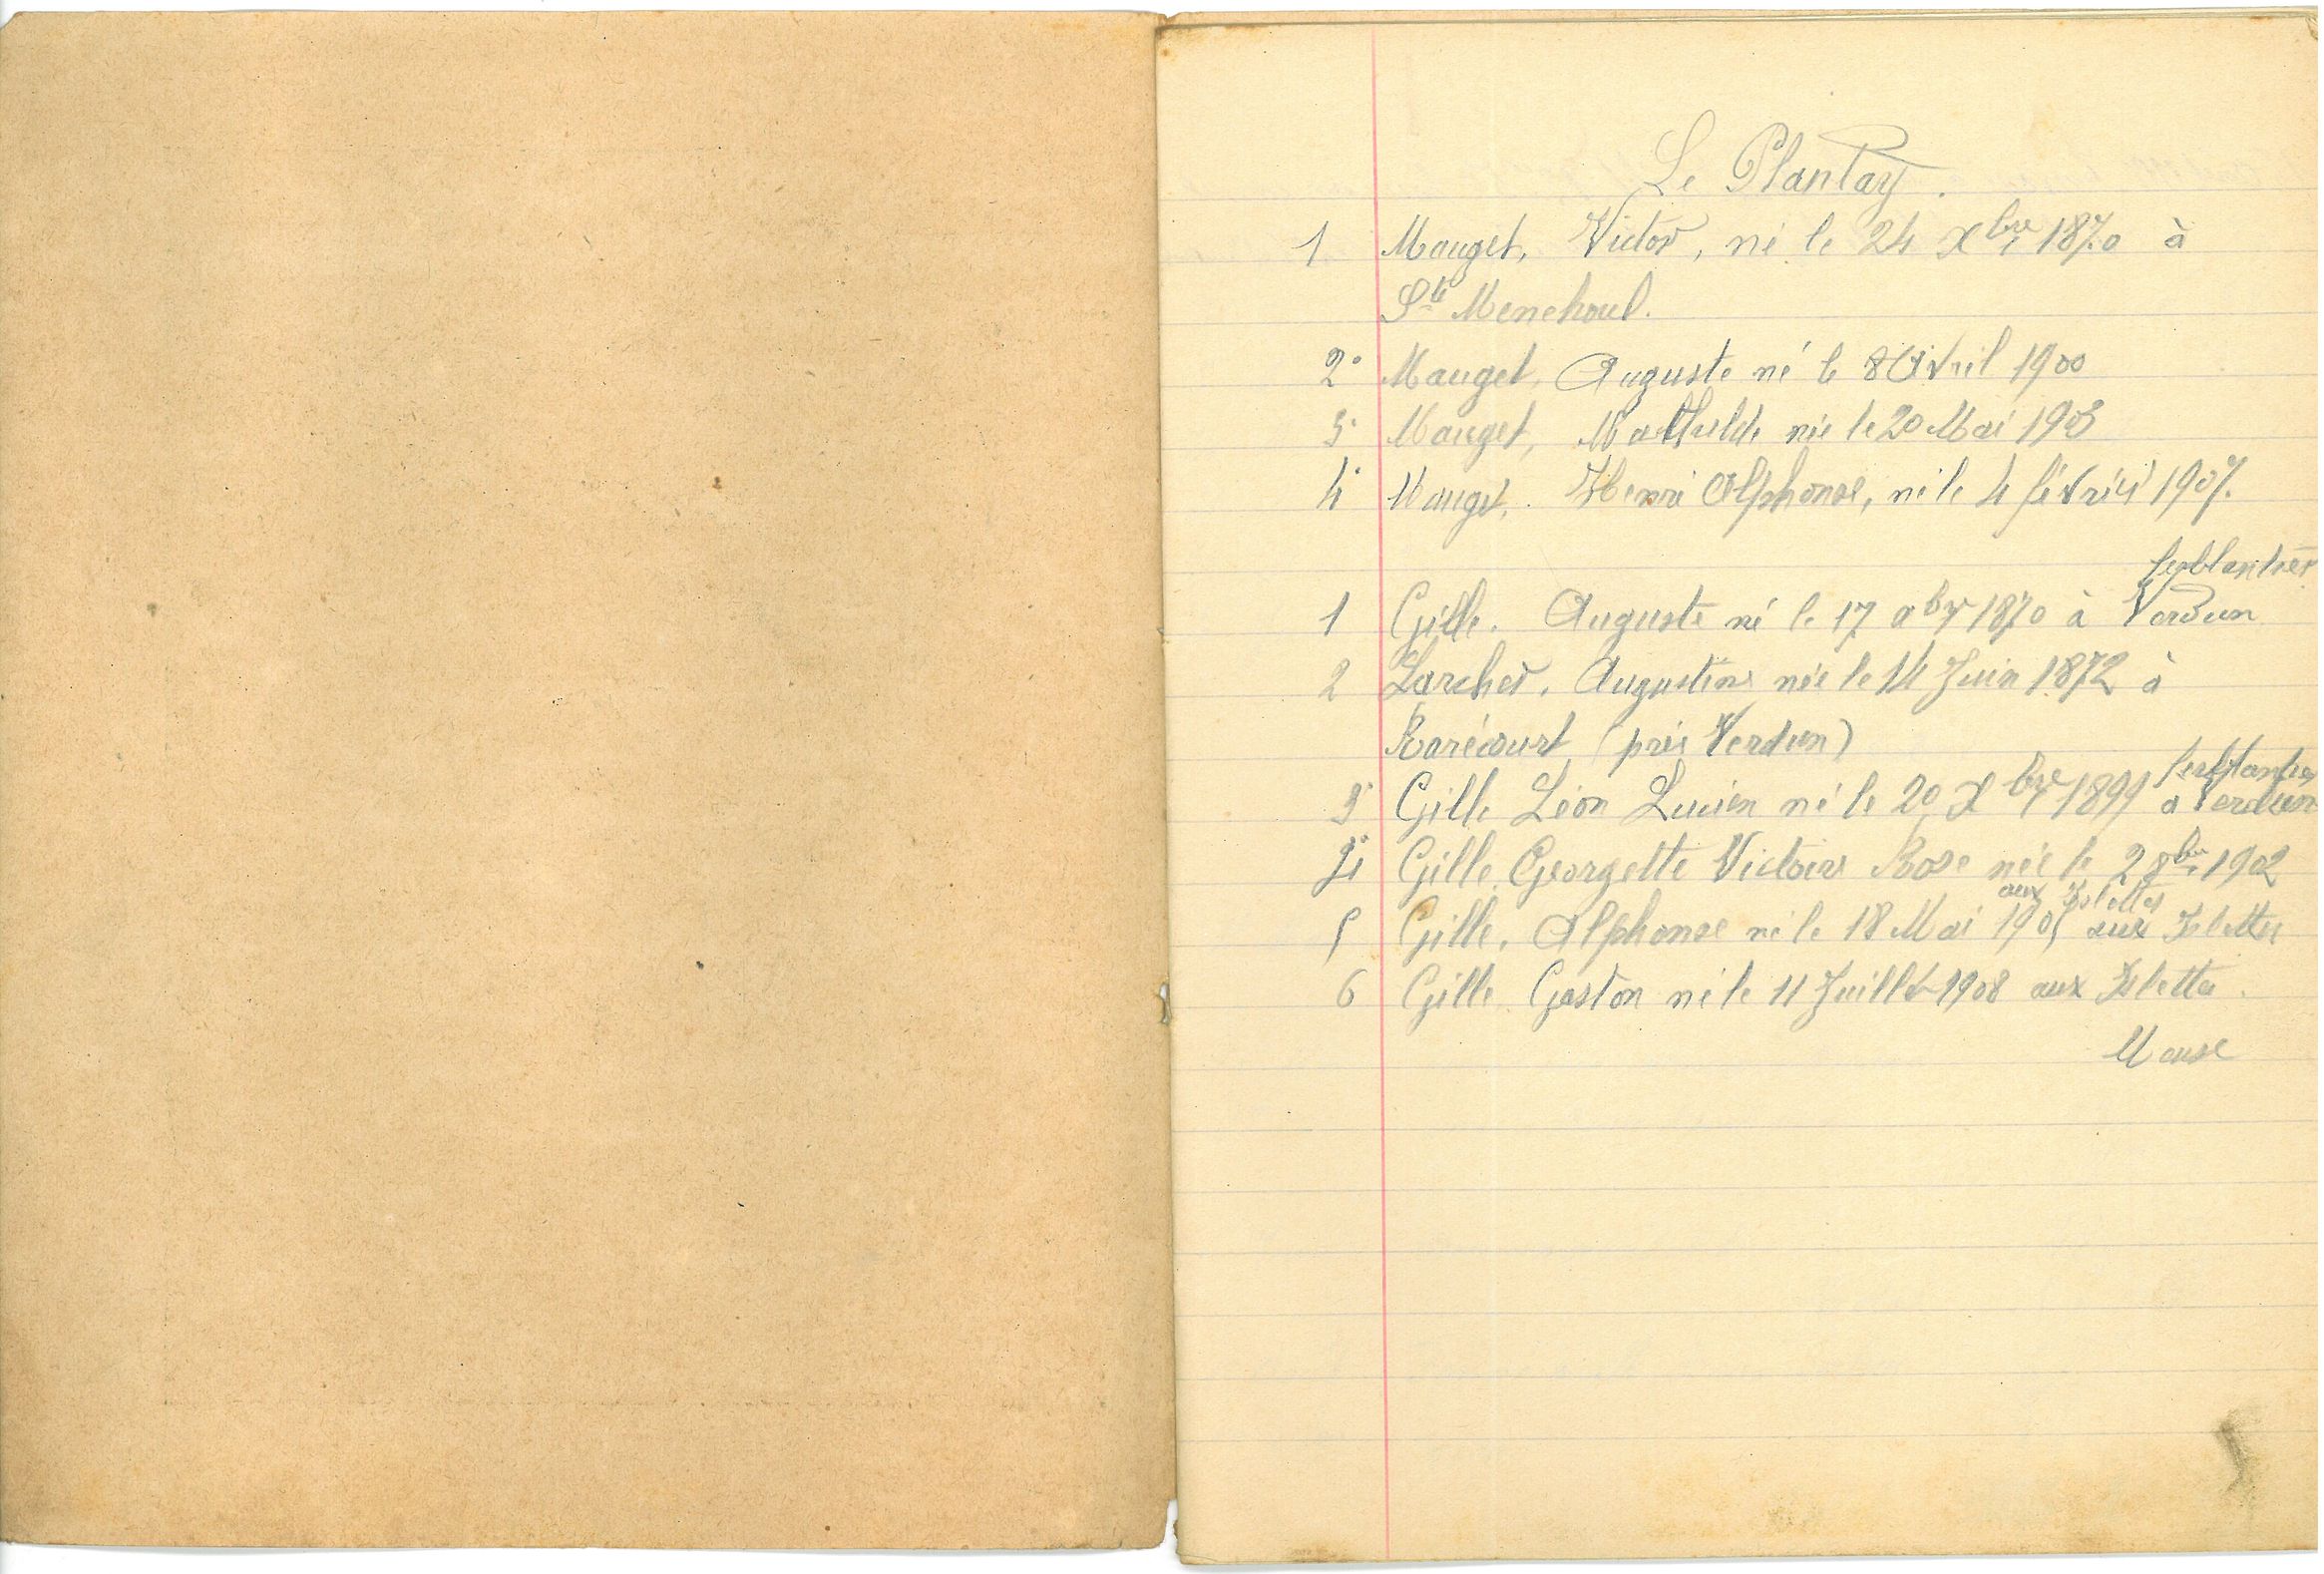 Le Plantay.
1 Mauget, Victor, né le 24 Xbre 1870 à
Ste Menehoul.
2° Mauget, Auguste né le 8 Avril 1900
3° Mauget, Mathilde née le 20 Mai 1903
4° Mauget, Henri Alphonse, né le 4 février 1907.
ferblantier
1 Gille. Auguste né le 17 abr 1870 à Verdun
2 Larcher, Augustine née le 14 Juin 1872 à
Rarécourt (près Verdun)
ferblantier
3° Gille Léon Lucien né le 20 Xbre 1899 à Verdun
4° Gille Georgette Victoire Rose née le 2 8bre 1902
aux Islettes
5 Gille, Alphonse né le 18 Mai 1905 aux Islettes
6 Gille Gaston né le 11 Juillet 1908 aux Islettes.
Meuse